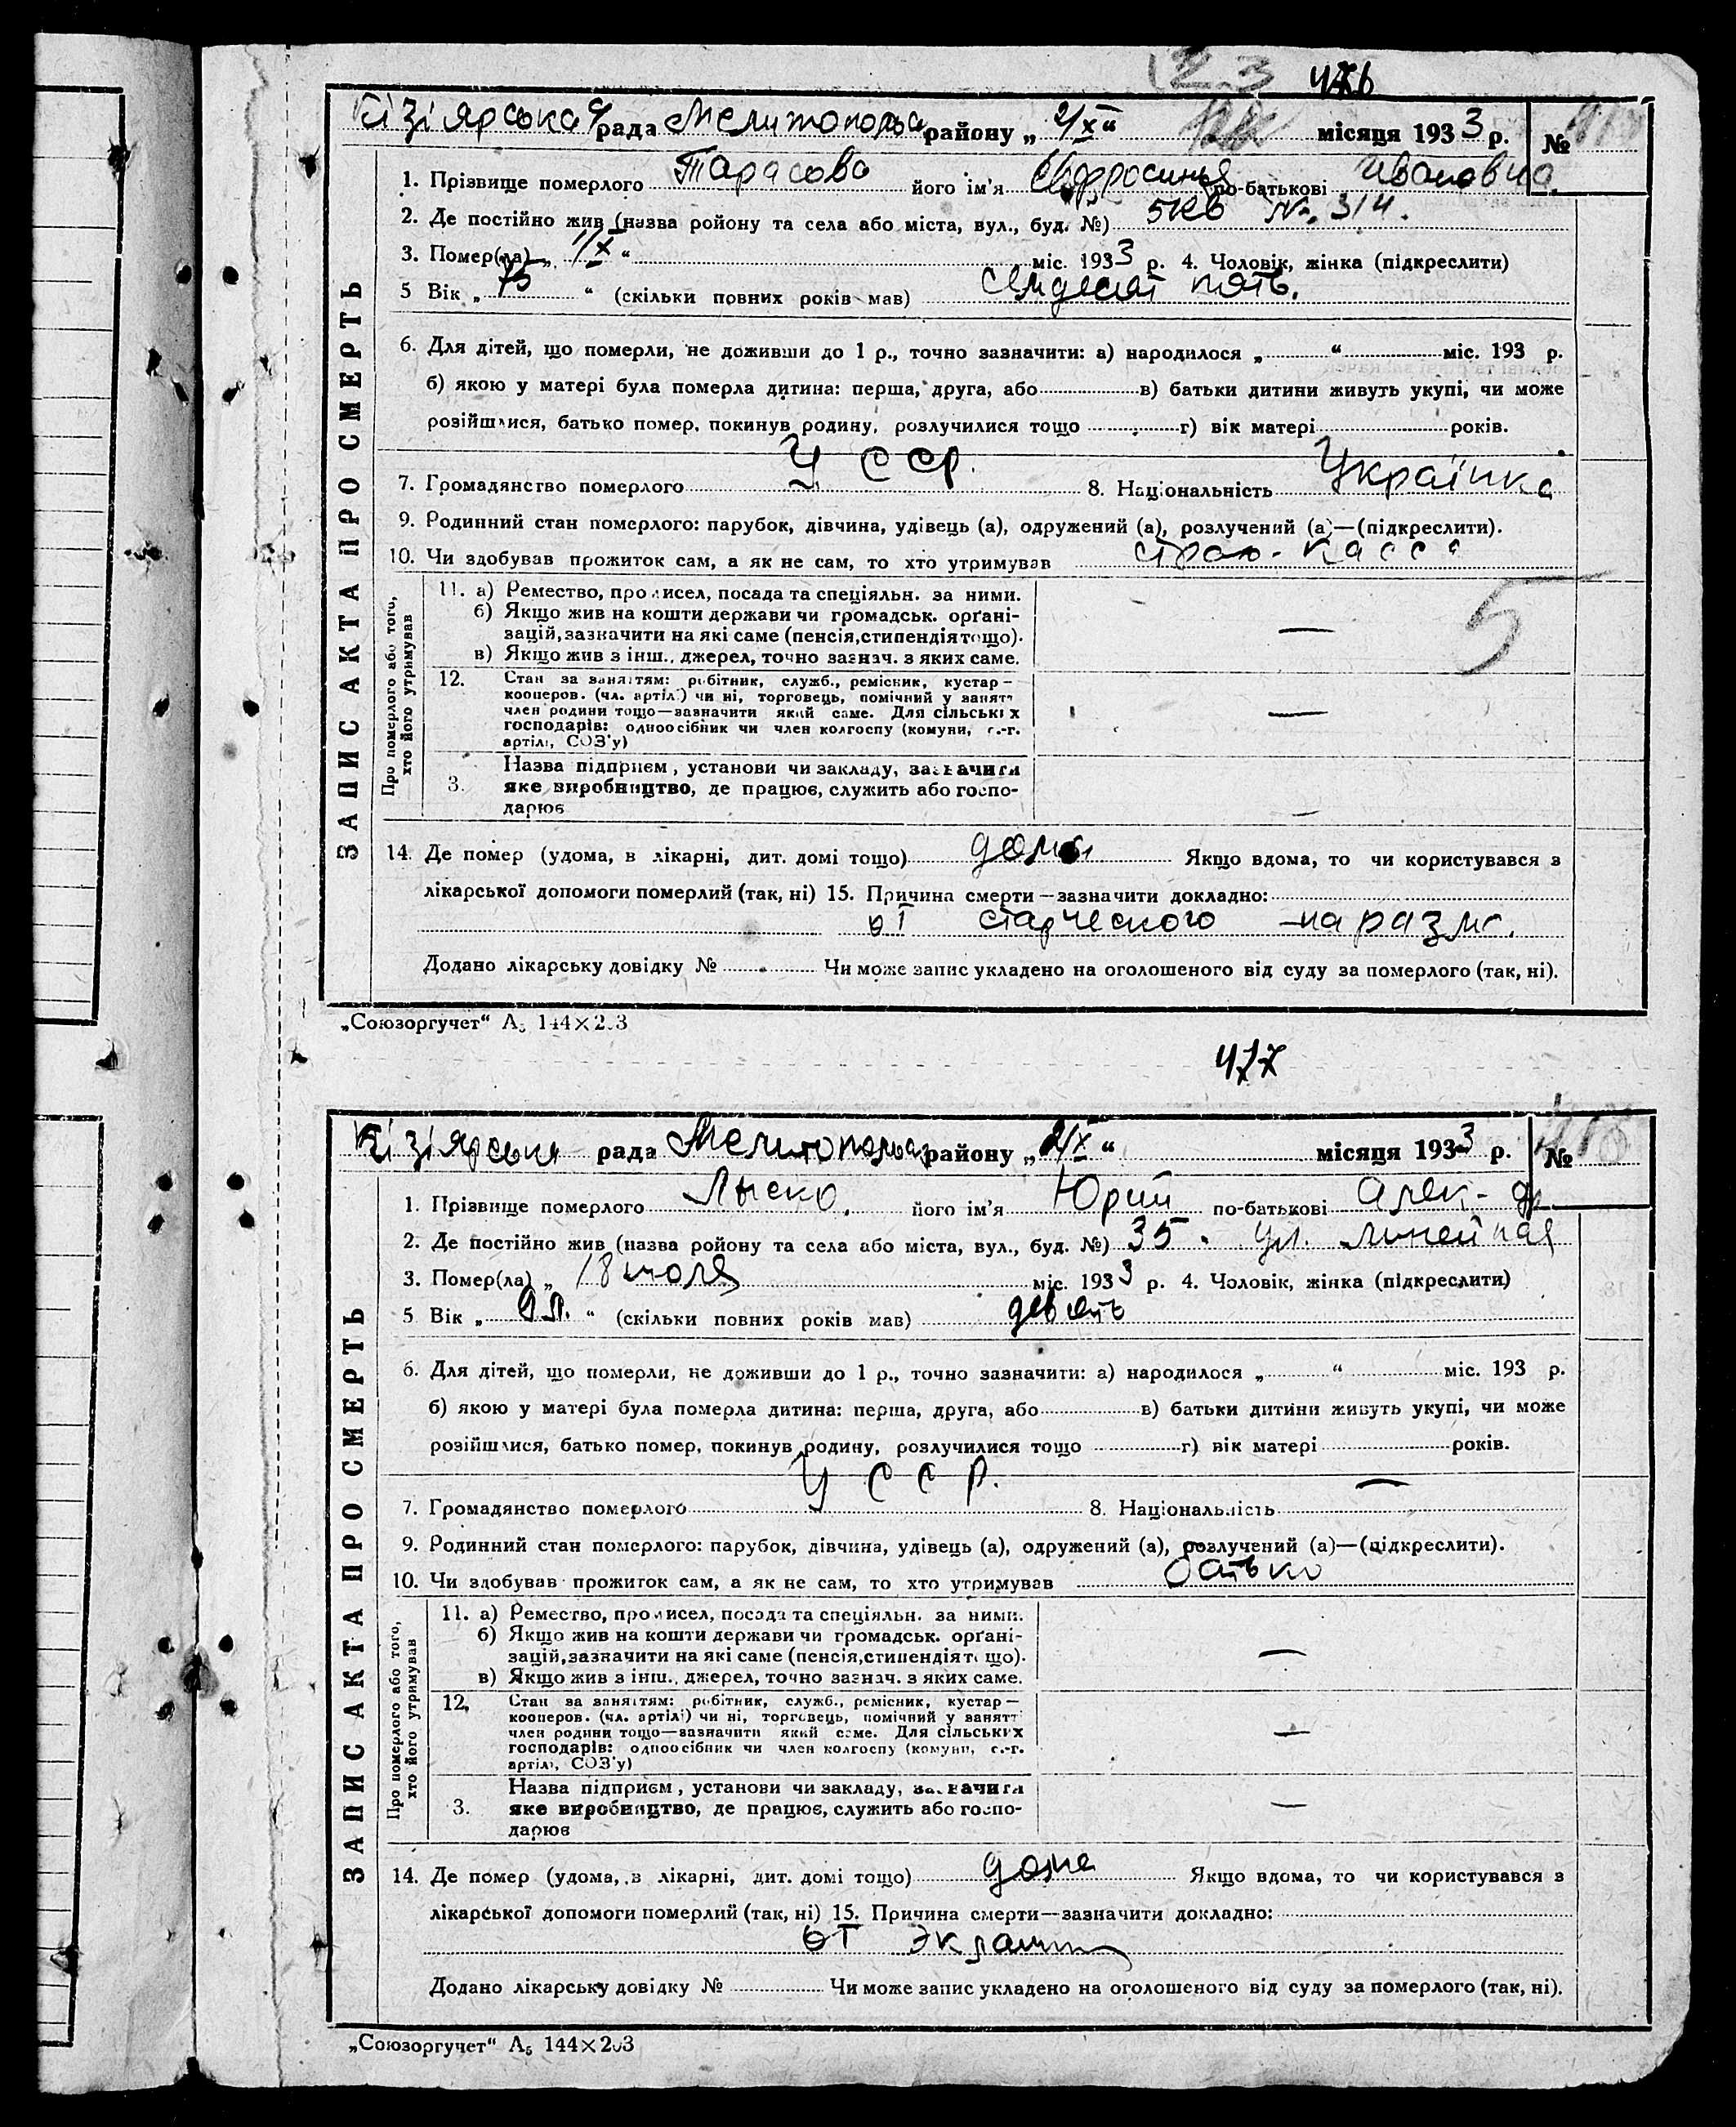 476
Кізіярська рада Мелитопольск району „ 2/X “ місяця 1933 р. №
1. Прізвище померлого Тарасова його ім'я по-батькові Ивановна
2. Де постійно жив (назва ройону та села або міста, вул., буд. №) 5 кв № 314.
3. Помер(ла) „ 1/X “ міс. 1933 р. 4. Чоловік, жінка (підкреслити)
5 Вік „ 75 “ (скільки повних років мав) Семдесят пять.
6. Для дітей, що померли, не доживши до 1 р., точно зазначити: а) народилося „ “ міс. 193 р.
б) якою у матері була померла дитина: перша, друга, або в) батьки дитини живуть укупі, чи може
розійшлися, батько помер, покинув родину, розлучилися тощо г) вік матері років.
7. Громадянство померлого У ССР. 8. Національність Українка
9. Родинний стан померлого: парубок, дівчина, удівець (а), одружений (а), розлучений (а)—(підкреслити).
10. Чи здобував прожиток сам, а як не сам, то хто утримував страх. касса
ЗАПИС АКТА ПРО СМЕРТЬ
Про померлого або того, хто його утримував
11. а) Ремество, промисел, посада та спеціяльн. за ними.
б) Якщо жив на кошти держави чи громадськ. орґані-
зацій, зазначити на які саме (пенсія, стипендія тощо).
в) Якщо жив з інш., джерел, точно зазнач. з яких саме.
5
12. Стан за заняттям: робітник, служб., ремісник, кустар—
кооперов. (чл. артілі) чи ні, торговець, помічний у занятт
член родини тощо—зазначити який саме. Для сільських
господарів: одноосібник чи член колгоспу (комуни, с.-г.
артілі, СОЗ'у)
3. Назва підприєм, установи чи закладу, зазначити
яке виробництво, де працює, служить або госпо-
дарює
14. Де помер (удома, в лікарні, дит. домі тощо) дома Якщо вдома, то чи користувався з
лікарської допомоги померлий (так, ні) 15. Причина смерти—зазначити докладно:
от старческого маразма.
Додано лікарську довідку № Чи може запис укладено на оголошеного від суду за померлого (так, ні).
„Союзоргучет“ А₅ 144×203
477
Кізіярська рада Мелитопольск району „ 2/X “ місяця 1933 р. №
1. Прізвище померлого Лыско. його ім'я Юрий по-батькові Алек-др
2. Де постійно жив (назва ройону та села або міста, вул., буд. №) 35. ул. Линейная
3. Помер(ла) „ 18 июля міс. 1933 р. 4. Чоловік, жінка (підкреслити)
5 Вік „ 9 л. “ (скільки повних років мав) девять
6. Для дітей, що померли, не доживши до 1 р., точно зазначити: а) народилося „ “ міс. 193 р.
б) якою у матері була померла дитина: перша, друга, або в) батьки дитини живуть укупі, чи може
розійшлися, батько помер, покинув родину, розлучилися тощо г) вік матері років.
7. Громадянство померлого У С С Р. 8. Національність —
9. Родинний стан померлого: парубок, дівчина, удівець (а), одружений (а), розлучений (а)—(підкреслити).
10. Чи здобував прожиток сам, а як не сам, то хто утримував батько
ЗАПИС АКТА ПРО СМЕРТЬ
Про померлого або того, хто його утримував
11. а) Ремество, промисел, посада та спеціяльн. за ними.
б) Якщо жив на кошти держави чи громадськ. орґані-
зацій, зазначити на які саме (пенсія, стипендія тощо).
в) Якщо жив з інш., джерел, точно зазнач. з яких саме.
12. Стан за заняттям: робітник, служб., ремісник, кустар—
кооперов. (чл. артілі) чи ні, торговець, помічний у занятт
член родини тощо—зазначити який саме. Для сільських
господарів: одноосібник чи член колгоспу (комуни, с.-г.
артілі, СОЗ'у)
3. Назва підприєм, установи чи закладу, зазначити
яке виробництво, де працює, служить або госпо-
дарює
14. Де помер (удома, в лікарні, дит. домі тощо) дома Якщо вдома, то чи користувався з
лікарської допомоги померлий (так, ні) 15. Причина смерти—зазначити докладно:
от
Додано лікарську довідку № Чи може запис укладено на оголошеного від суду за померлого (так, ні).
„Союзоргучет“ А₅ 144×203